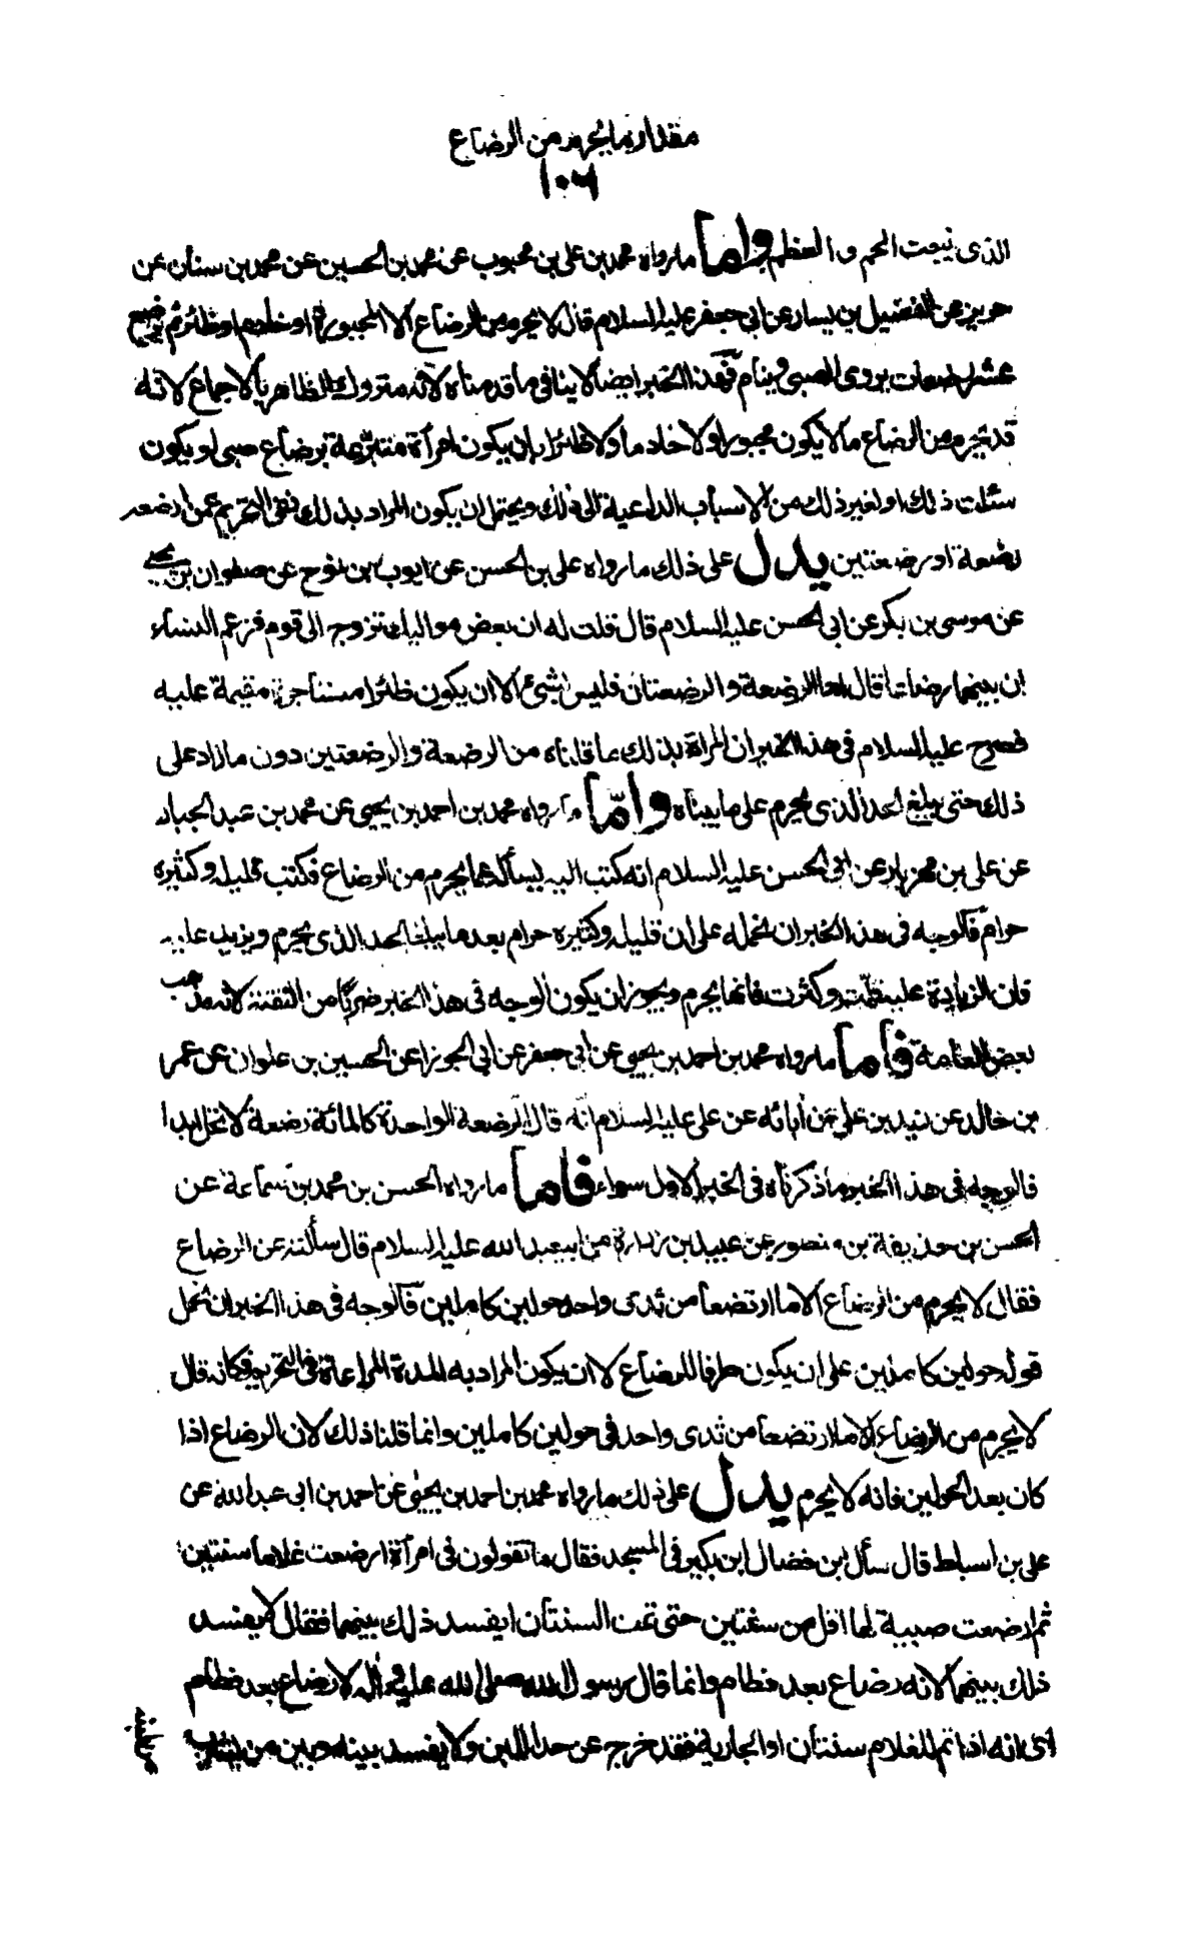 مقدار ما يحرم من الرضاع
١٠٦
الذى ينبت اللحم و العظم واما ما رواه محمد بن على بن محبوب عن محمد بن الحسين عن محمد بن سنان عن
حريز عن الفضيل بن يسار عن ابى جعفر عليه السلام قال لا يحرم من الرضاع الا المجبورة او خادم او ظئر ثم يرضع
عشر رضعات يروى الصبى وينام فهذا الخبر ايضا لا ينافى ما قدمناه لانه متروك الظاهر بالاجماع لانه
قد يحرم من الرضاع ما لا يكون مجبورا ولا خادما ولا ظئرا بان يكون امرأة متبرعة برضاع صبى او يكون
سئلت ذلك او لغير ذلك من الاسباب الداعية الى ذلك ويحتمل ان يكون المراد بذلك نفى التحريم عمن ارضعه
رضعة او رضعتين يدل على ذلك ما رواه على بن الحسن عن ايوب بن نوح عن صفوان بن يحيى
عن موسى بن بكر عن ابى الحسن عليه السلام قال قلت له ان بعض مواليك تزوج الى قوم فزعم النساء
ان بينهما رضاعا قال اما الرضعة و الرضعتان فليس بشئ الا ان يكون ظئرا مستأجرة مقيمة عليه
فصرح عليه السلام فى هذا الخبر ان المراة بذلك ما قلناه من الرضعة والرضعتين دون ما زاد على
ذلك حتى يبلغ الحد الذى يحرم على ما بيناه واما ما رواه محمد بن احمد بن يحيى عن محمد بن عبد الجبار
عن على بن مهزيار عن ابى الحسن عليه السلام انه كتب اليه يسأله عما يحرم من الرضاع فكتب قليله وكثيره
حرام فالوجه فى هذا الخبر ان نحمله على ان قليله وكثيره حرام بعد ما يبلغ الحد الذى يحرم ويزيد عليه
فان الزيادة عليه قلت او كثرت فانها يحرم ويجوز ان يكون الوجه فى هذا الخبر ضربا من التقية لانه مذهب
بعض العامة فاما ما رواه محمد بن احمد بن يحيى عن ابى جعفر عن ابى الجوزا عن الحسين بن علوان عن عمرا
بن خالد عن زيد بن على عن أبائه عن على عليه السلام انه قال الرضعة الواحدة كالمائة رضعة لا تحل ابدا
فالوجه فى هذا الخبر ما ذكرناه فى الخبر الاول سواء فاما ما رواه الحسن بن محمد بن سماعة عن
الحسن بن حذيفة بن منصور عن عبيد بن زرارة عن ابيعبد الله عليه السلام قال سألته عن الرضاع
فقال لا يحرم من الرضاع الا ما ارتضعا من ثدى واحد حولين كاملين فالوجه فى هذا الخبر ان نحمل
قوله حولين كاملين على ان يكون ظرفا للرضاع لا ان يكون المراد به المدة المراعاة فى التحريم فكانه قال
لا يحرم من الرضاع الا ما ارتضعا من ثدى واحد فى حولين كاملين وانما قلنا ذلك لان الرضاع اذا
كان بعد الحولين فانه لا يحرم يدل على ذلك ما رواه محمد بن احمد بن يحيى عن احمد بن ابى عبد الله عن
على بن اسباط قال سأل ابن فضال ابن بكير فى المسجد فقال ما تقولون فى امرأة ارضعت غلاما سنتين
ثم ارضعت صبية لها اقل من سنتين حتى تمت السنتان ايفسد ذلك بينهما فقال لا يفسد
ذلك بينهما لانه رضاع بعد فطام وانما قال رسول الله صلى الله عليه وآله لا رضاع بعد فطام
اى انه اذا تم للغلام سنتان او الجارية فقد خرج عن حد اللبن ولا يفسد بينه وبين من يشرب
من لبنه